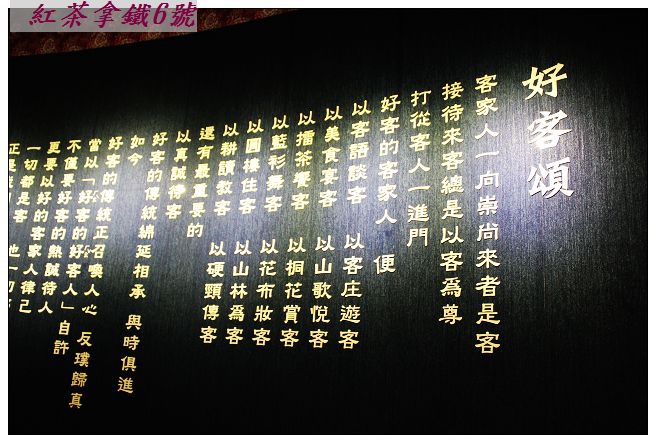 紅茶拿鐵6號
好客頌
客家人一向崇尚來者是客
接待來客總是以客為尊
打從客人一進門
好客的客家人 便
以客語談客 以客庄遊客
以美食宴客 以山歌悅客
以擂茶饗客 以桐花賞客
以藍衫舞客 以花布妝客
以圓樓住客 以山林為客
以耕讀教客 以硬頸傳客
還有最重要的
以真誠待客
好客的傳統綿延相承 與時俱進
如今
好客的傳統正召喚人心 反璞歸真
當以「好客的好客人」自許
不僅要好客的熱誠待人
更要以好的客家人律己
一切都是客